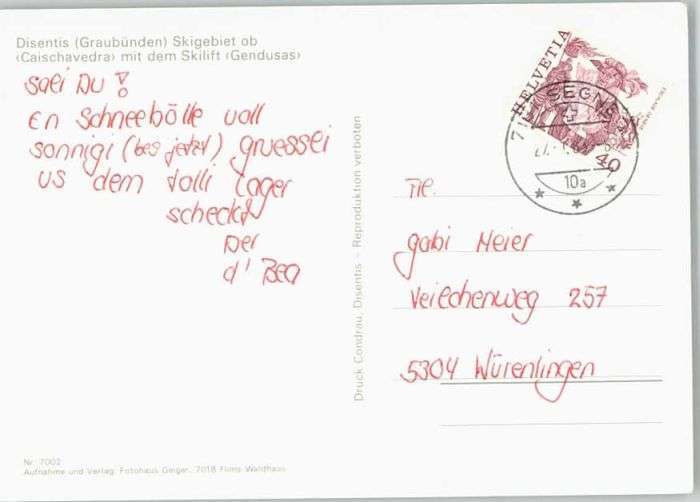 Disentis (Graubünden) Skigebiet ob
‹Caischavedra› mit dem Skilift ‹Gendusas›
Sali Du!
En Schneebölle voll
sonnigi (bes jetzt) gruessli
us dem tolli lager
scheckt
Der
d' Bea
HELVETIA
40
SEGNAS
10a
Druck Condrau, Disentis – Reproduktion verboten
Frl.
Gabi Meier
Veilchenweg 257
5304 Würenlingen
Nr. 7002
Aufnahme und Verlag: Fotohaus Geiger, 7018 Flims Waldhaus